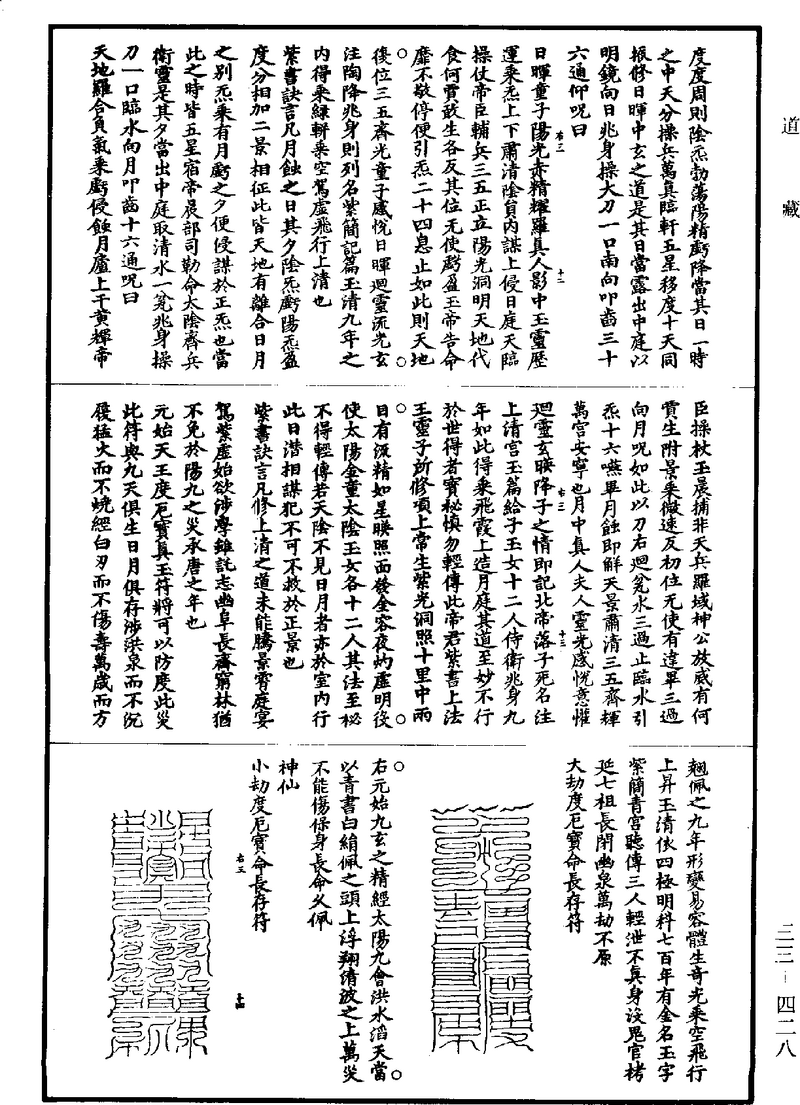 道藏
度度周則陰炁勃蕩陽精虧降當其日一時
之中天分操兵萬真臨軒五星移度十天同
振修日暉中玄之道是其日當露出中庭以
明鏡向日兆身操大刀一口南向叩齒三十
六通仰呪曰
日暉童子陽光赤精耀羅真人影中玉靈歷
右三
十二
運乘炁上下肅清陰貟內謀上侵日庭天臨
操仗帝臣輔兵三五正立陽光洞明天地代
食何賣敢生各反其位无使虧盈玉帝告命
靡不敬停便引炁二十四息止如此則天地
復位三五齊光童子感悅日暉迴靈流光玄
注陶降兆身則列名紫簡記篇玉清九年之
內得乘綠軿乘空駕虛飛行上清也
紫書訣言凡月蝕之日其夕陰炁虧陽炁盈
度分相加二景相征此皆天地有離合日月
之別炁乘有月虧之夕便侵謀於正炁也當
此之時皆五星宿帝晨部司勒命太陰齊兵
衛靈是其夕當出中庭取清水一瓮兆身操
刀一口臨水向月叩齒十六通呪曰
天地羅合負氣乘虧侵蝕月廬上干黃輝帝
臣操杖玉晨捕非天兵羅域神公放威有何
賣生附景乘微速反初位无使有違畢三過
向月呪如此以刀右迴瓮水三過止臨水引
炁十六嚥畢月蝕即解天景肅清三五齊輝
萬宮安寧也月中真人夫人靈光感悅意懽
右三
十三
迴靈玄暎降子之情即記北帝落子死名注
上清宮玉篇給子玉女十二人侍衛兆身九
年如此得乘飛霞上造月庭其道至妙不行
於世得者寶秘慎勿輕傳此帝君紫書上法
王靈子所修項上常生紫光洞照十里中兩
目有流精如星暎照面發金容夜灼虛明役
使太陽金童太陰玉女各十二人其法至秘
不得輕傳若天陰不見日月者亦於室內行
此日潛相謀犯不可不救於正景也
紫書訣言凡修上清之道未能騰景霄庭宴
駕紫虛始欲涉學雖託志幽阜長齋窮林猶
不免於陽九之災承唐之年也
元始天王度厄寶真玉符將可以防度此災
此符與九天俱生日月俱存涉洪泉而不沉
履猛火而不燒經白刃而不傷壽萬歲而方
翹佩之九年形變易容體生奇光乘空飛行
上昇玉清依四極明科七百年有金名玉字
紫簡青宮聽傳三人輕泄不真身沒鬼官栲
延七祖長閉幽泉萬劫不原
大劫度厄寶命長存符
右元始九玄之精經太陽九會洪水滔天當
以青書白絹佩之頭上浮翔清波之上萬災
不能傷保身長命久佩
神仙
小劫度厄寶命長存符
右三
十四
三三－四二八